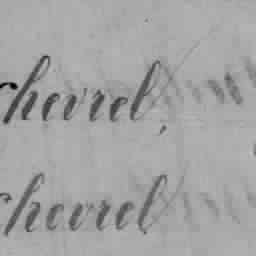 chevrel,
chevrel